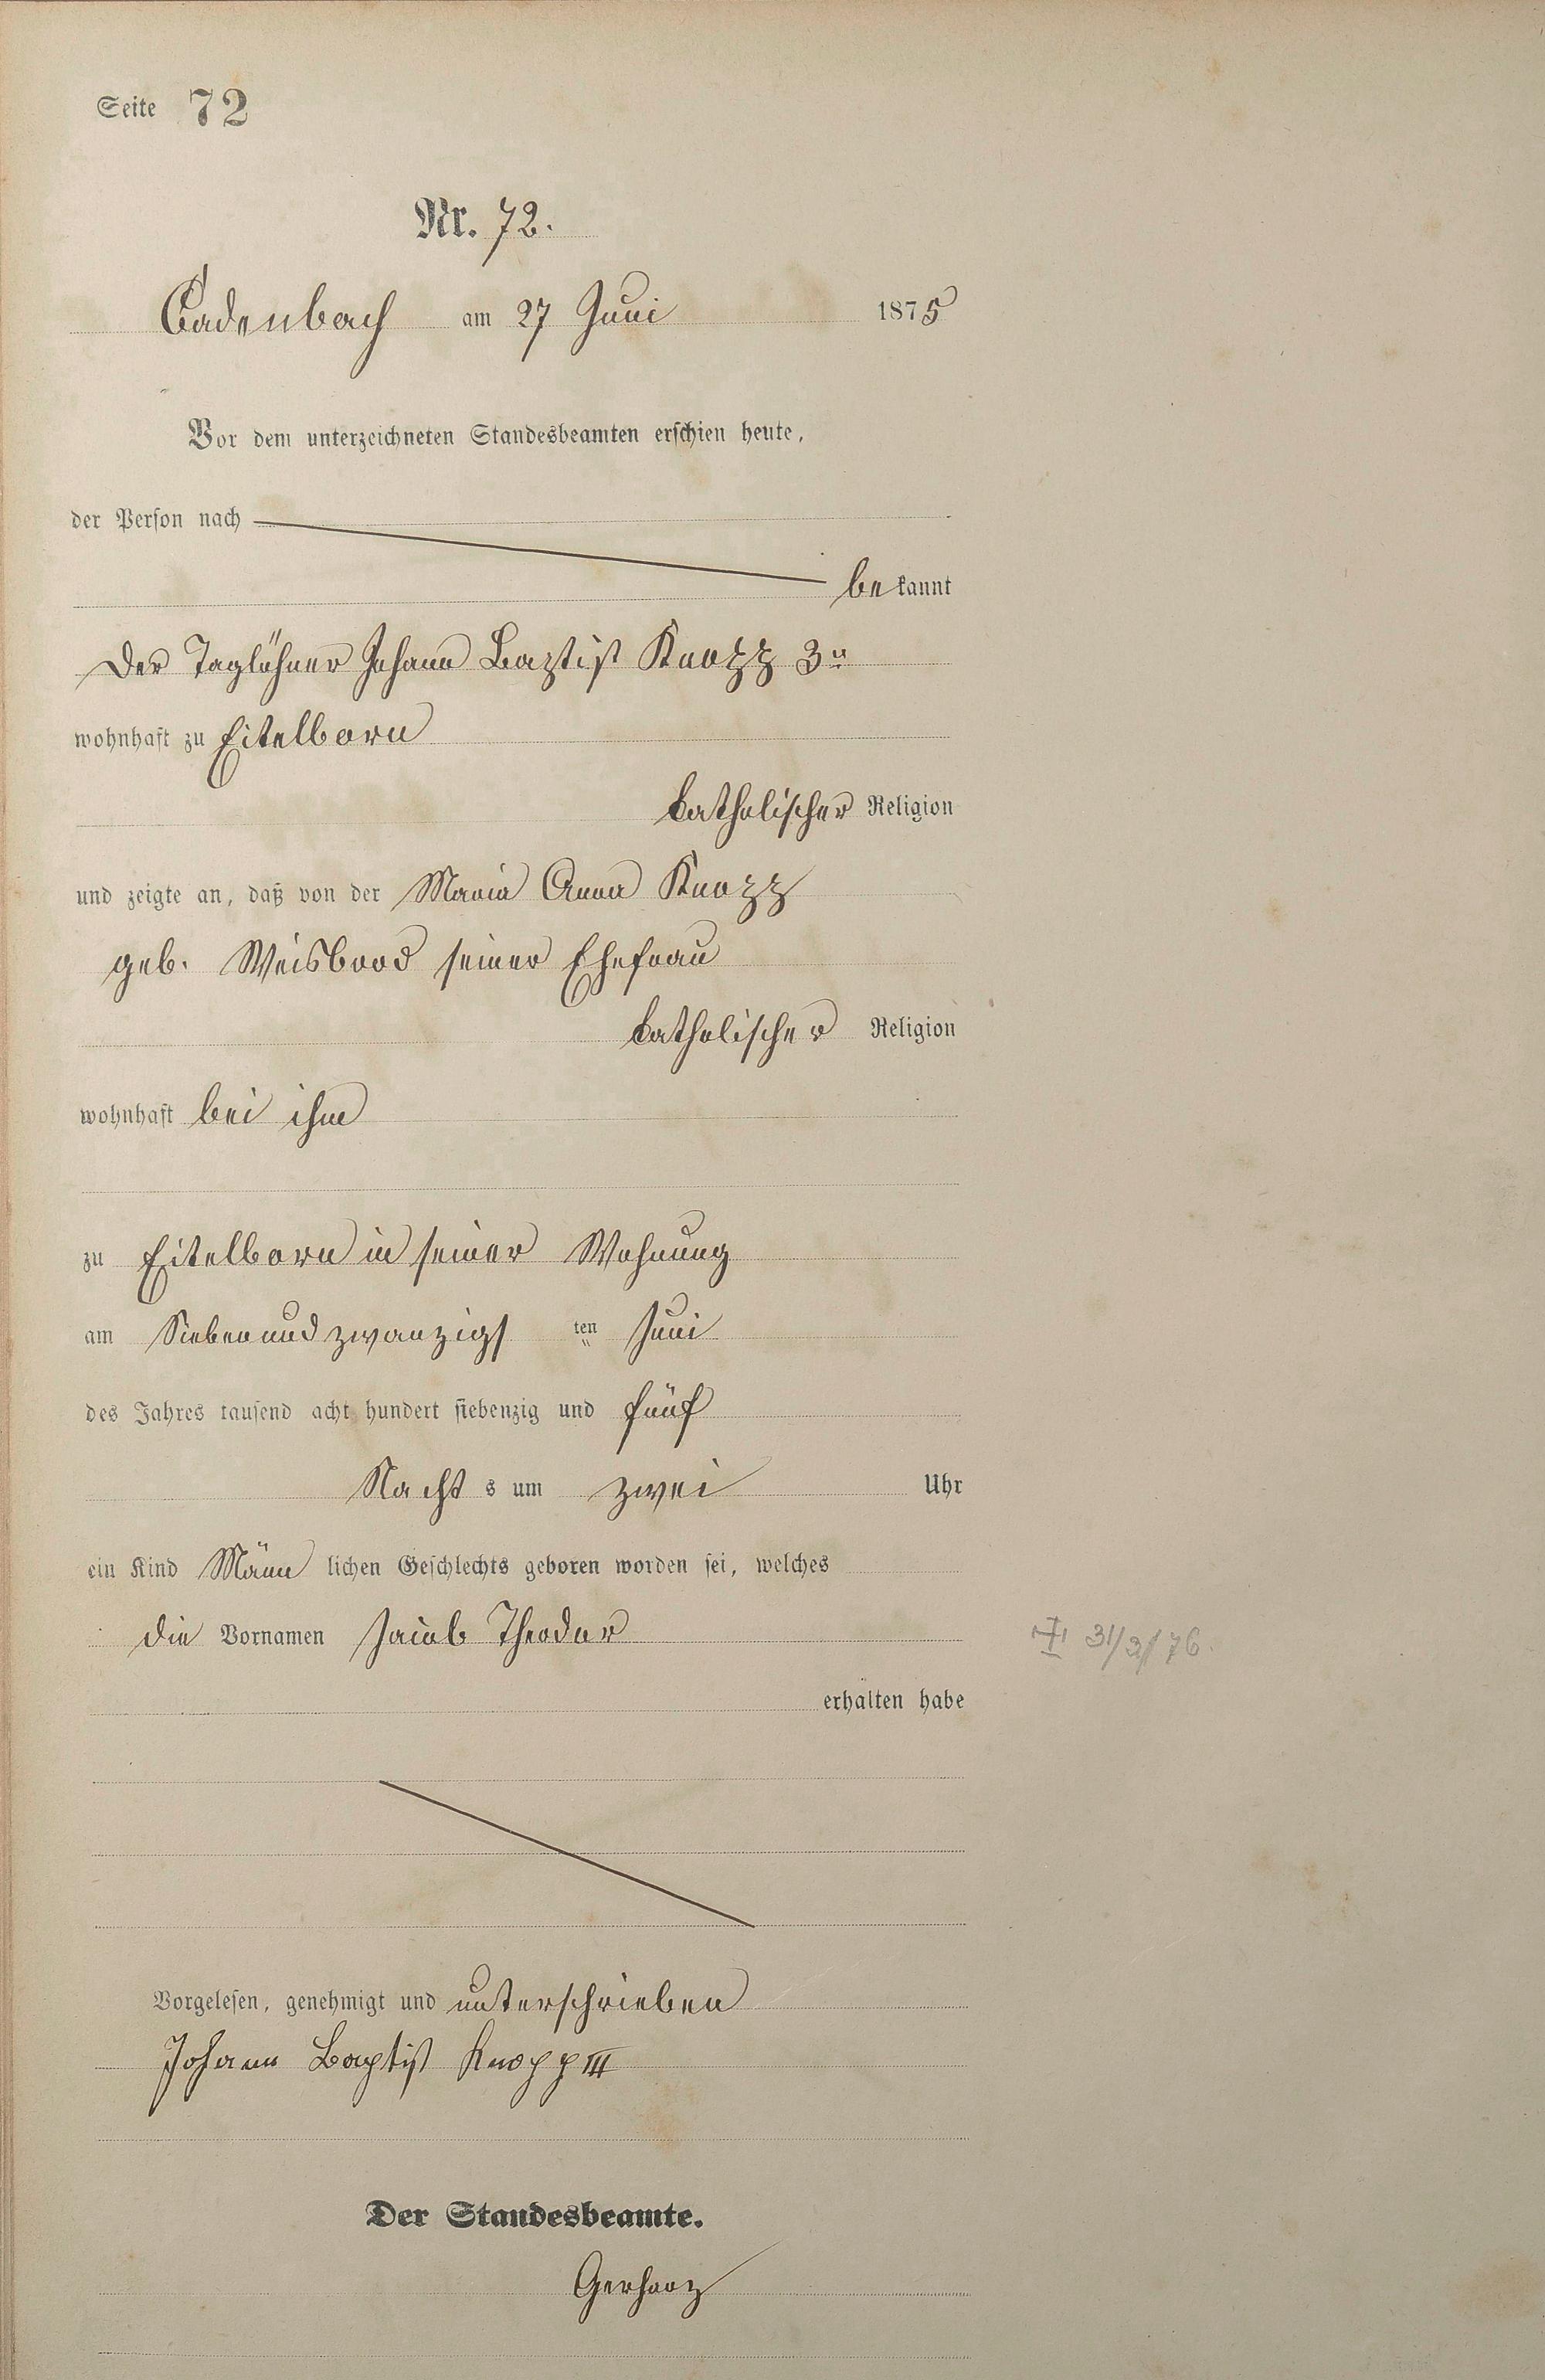 Seite 72
Nr. 72.
Cadenbach am 27 Juni 1875
Vor dem unterzeichneten Standesbeamten erschien heute,
der Person nach
bekannt
der Taglöhner Johann Baptist Knopp 3r
wohnhaft zu Eitelborn
katholischer Religion
und zeigte an, daß von der Maria Anna Knopp
geb. Weisbrod seiner Ehefrau
katholischer Religion
wohnhaft bei ihm
zu Eitelborn in seiner Wohnung
am Siebenundzwanzigsten Juni
des Jahres tausend acht hundert siebenzig und fünf
Nachts um zwei Uhr
ein Kind Männlichen Geschlechts geboren worden sei, welches
die Vornamen Jacob Theodor
31/3/76.
erhalten habe
Vorgelesen, genehmigt und unterschrieben
Johann Baptist Knopp III
Der Standesbeamte.
Gerharz